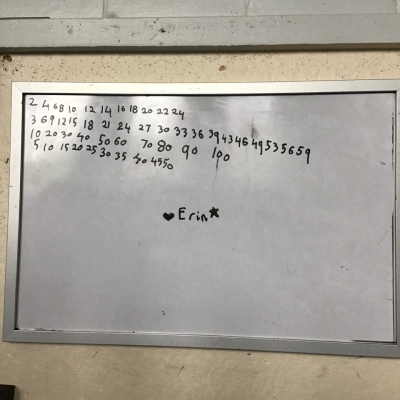 2 4 6 8 10 12 14 16 18 20 22 24
3 6 9 12 15 18 21 24 27 30 33 36 39 43 46 49 53 56 59
10 20 30 40 50 60 70 80 90 100
5 10 15 20 25 30 35 40 45 50
♥ Erin ★